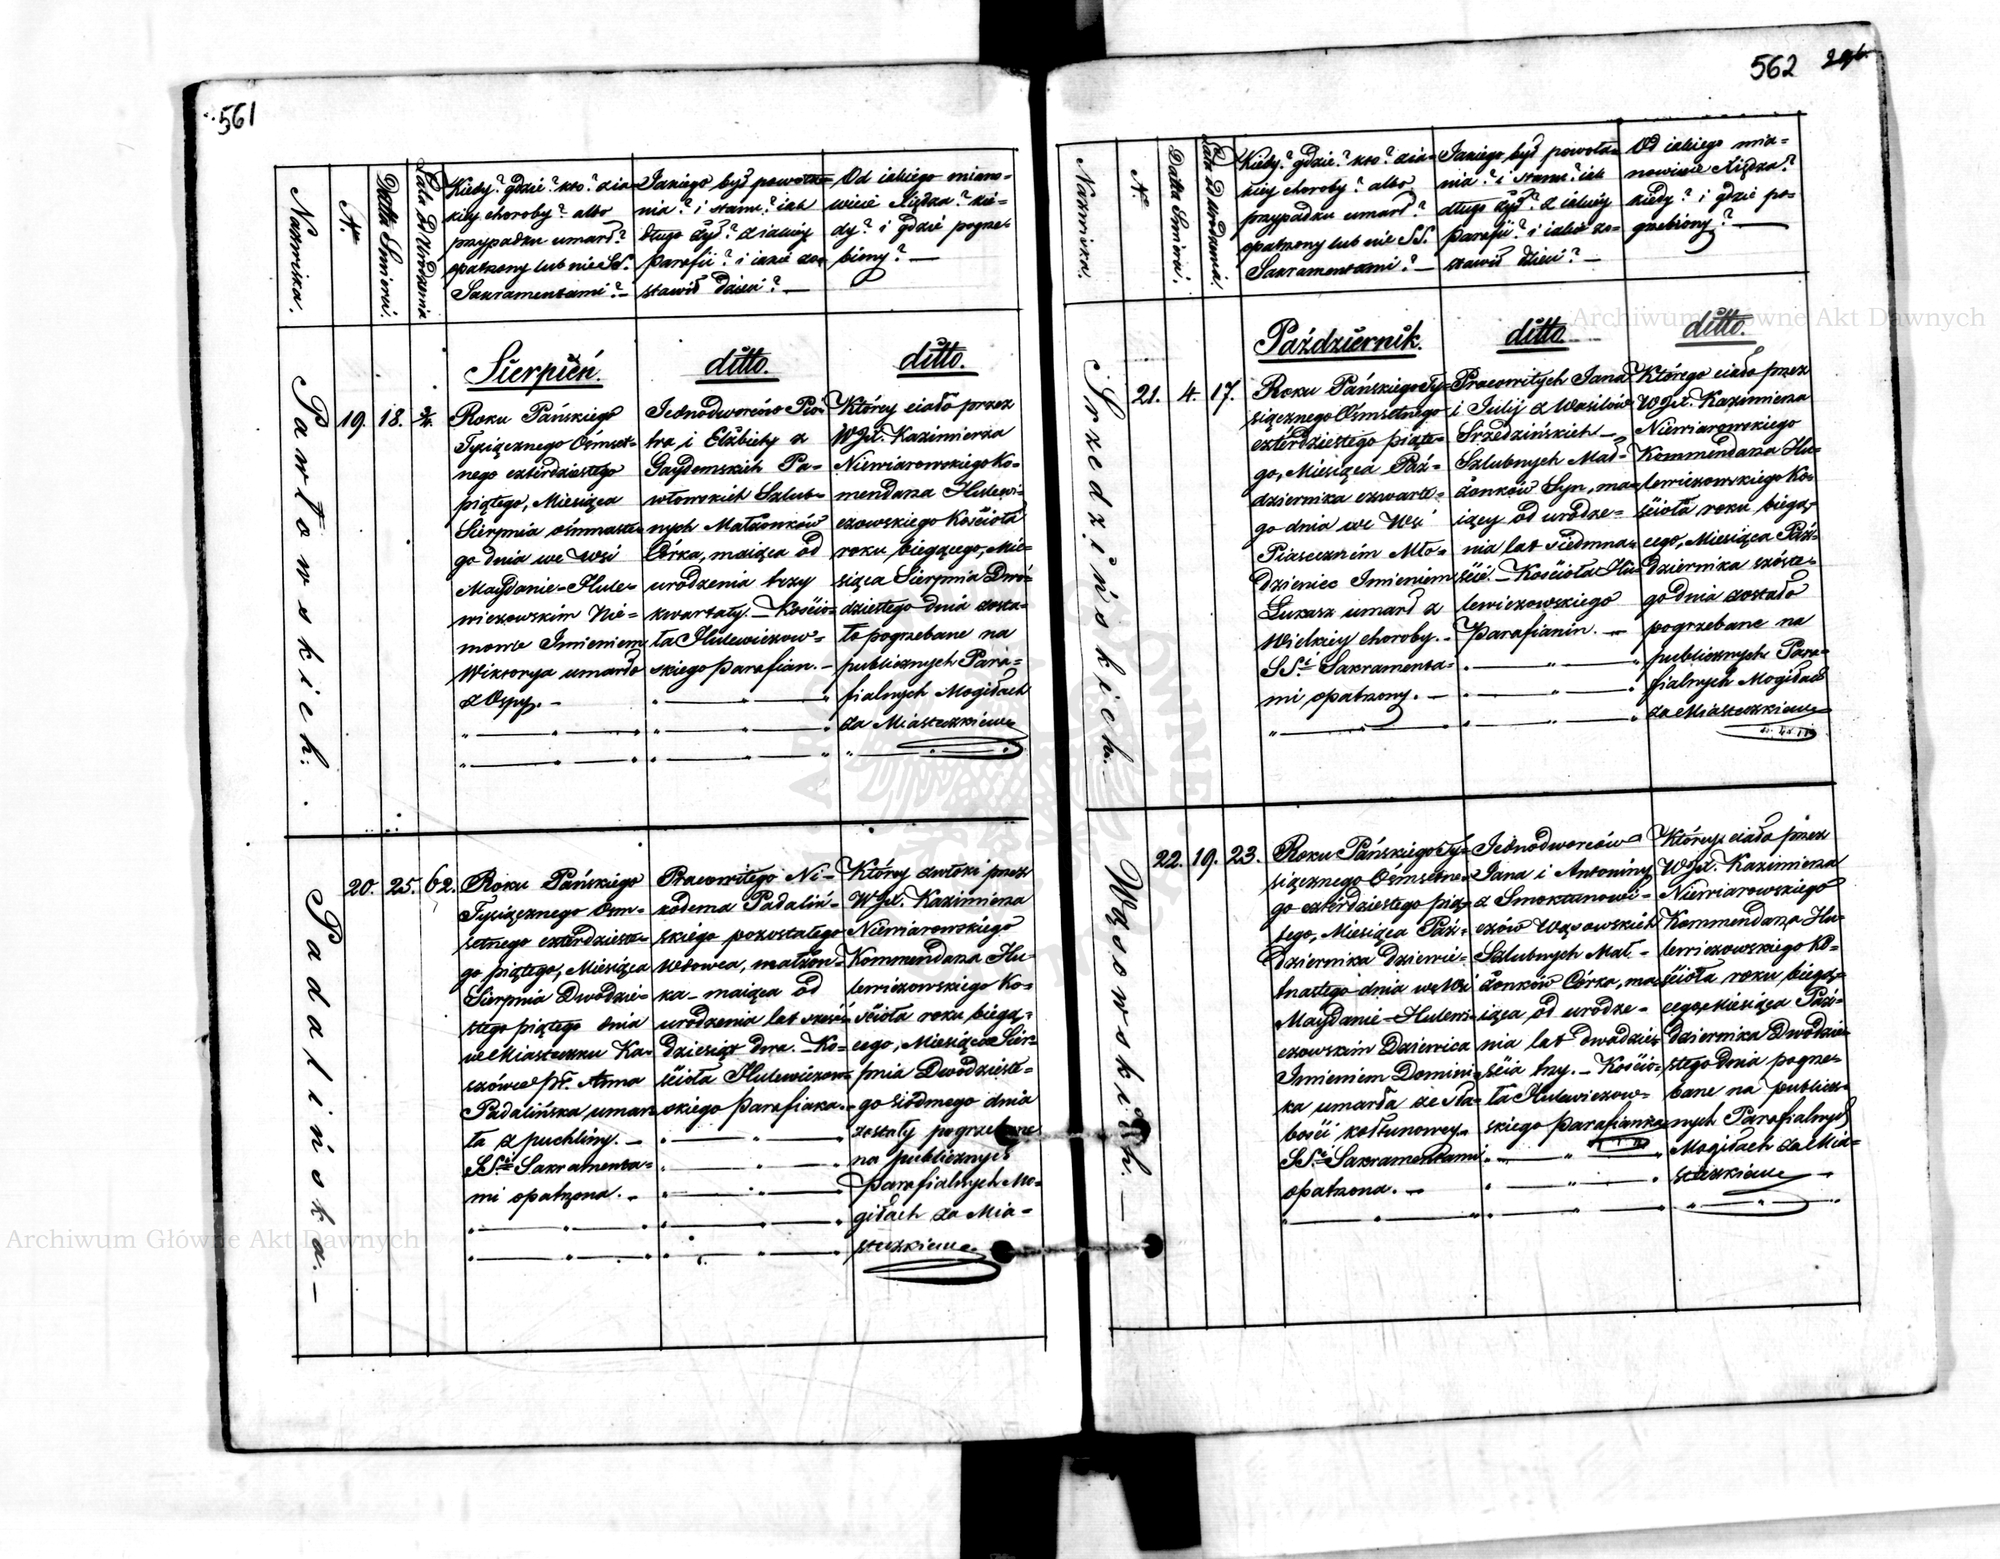 561
Nazwiska.
N.º
Datta Smierci.
Lata Od Urodzenia
Kiedy? gdzie? kto? z ia=
kiey choroby? albo
przypadku umarł?
opatrzony lub nie SS.
Sakramentami? —
Jakiego był powoła=
nia? i stanu? iak
długo żył? z iakiey
Parafii? i iakie zo=
stawił dzieci? —
Od iakiego miano=
wicie Xiędza? kie=
dy? i gdzie pogrze=
biony? —
Pawłowskich.
19.
18.
3/4.
Sierpień.
Roku Pańskiego
Tysiącznego Ośmset=
nego czterdziestego
piątego, Miesiąca
Sierpnia ośmnaste=
go dnia we Wsi
Maydanie-Hule=
wiczowskim Nie=
mowle Imieniem
Wiktorya umarło
z Ospy. —
ditto.
Jednodworców Pio=
tra i Elżbiety z
Gaydemskich Pa=
włowskich Szlub=
nych Małżonków
Córka, maiąca od
urodzenia trzy
kwartały. — Kościo=
ła Hulewiczow=
skiego Parafian. —
ditto.
Którey ciało przez
WJX. Kazimierza
Niewiarowskiego Ko=
mendarza Hulewi=
czowskiego Kościoła
roku bieżącego, Mie=
siąca Sierpnia Dwó=
dziestego dnia zosta=
ło pogrzebane na
publicznych Para=
fialnych Mogiłach
za Miasteczkiem.
Padalińska. —
20.
25.
62.
Roku Pańskiego
Tysiącznego Osm=
setnego czterdzieste=
go piątego, Miesiąca
Sierpnia Dwódzie=
stego piątego dnia
we Miasteczku Ka=
szówce Anna
Padalińska umar=
ła z puchliny. —
SS. Sakramenta=
mi opatrzona. —
Pracowitego Ni=
kodema Padaliń=
skiego pozostałego
Wdowca, małżon=
ka — maiąca od
urodzenia lat sześć=
dziesiąt dwa. — Ko=
ścioła Hulewiczow=
skiego Parafianka. —
Którey zwłoki przez
WJX. Kazimierza
Niewiarowskiego
Kommendarza Hu=
lewiczowskiego Ko=
ścioła roku, bieżą=
cego, Miesiąca Sier=
pnia Dwódzieste=
go siódmego dnia
zostały pogrzebane
na publicznych
Parafialnych Mo=
giłach za Mia=
steczkiem.
562
Nazwiska.
N.º
Datta Smierci.
Lata Od Urodzenia.
Kiedy? gdzie? kto? z ia=
kiey choroby? albo
przypadku umarł?
opatrzony lub nie SS.
Sakramentami? —
Jakiego był powoła=
nia? i stanu? iak
długo żył? z iakiey
Parafii? i iakie zo=
stawił dzieci? —
Od iakiego mia=
nowicie Xiędza?
kiedy? i gdzie po=
grzebiony? —
Srzedzińskich. —
21.
4.
17.
Październik.
Roku Pańskiego Ty=
siącznego Osmsetnego
czterdziestego piąte=
go, Miesiąca Paź=
dziernika czwarte=
go dnia we Wsi
Piaseczném Mło=
dzieniec Imieniem
Łukasz umarł z
Wielkiey choroby. —
SS. Sakramenta=
mi opatrzony. —
ditto.
Pracowitych Jana
i Julij z Wasilów
Srzedzińskich —
Szlubnych Mał=
żonków Syn, ma=
iący od urodze=
nia lat siedmna=
ście. — Kościoła Hu=
lewiczowskiego
Parafianin. —
ditto.
Którego ciało przez
WJX. Kazimierza
Niewiarowskiego
Kommendarza Hu=
lewiczowskiego Ko=
ścioła roku bieżą=
cego, Miesiąca Paź=
dziernika szóste=
go dnia zostało
pogrzebane na
publicznych Para=
fialnych Mogiłach
za Miasteczkiem
Wąsowskich. —
22.
19.
23.
Roku Pańskiego Ty=
siącznego Osmsetne=
go czterdziestego pią=
tego, Miesiąca Paź=
dziernika Dziewię=
tnastego dnia we Wsi
Maydanie-Hulewi=
czowskim Dziewica
Imieniem Domini=
ka umarła ze sła=
bości kołtunowey.
SS. Sakramentami
opatrzona. —
Jednodworców
Jana i Antoniny
z Smoktunowi=
czów Wąsowskich
Szlubnych Mał=
żonków Córka, ma=
iąca, od urodze=
nia lat dwadzie=
ścia trzy. — Kościo=
ła Hulewiczow=
skiego Parafianka
Którey ciało przez
WJX. Kazimierza
Niewiarowskiego
Kommendarza Hu=
lewiczowskiego Ko=
ścioła roku bieżą=
cego, Miesiąca Paź=
dziernika Dwódzie=
stego dnia pogrze=
bane na publicz=
nych Parafialnych
Mogiłach za Mia=
steczkiem
Archiwum Główne Akt Dawnych
Archiwum Główne Akt Dawnych